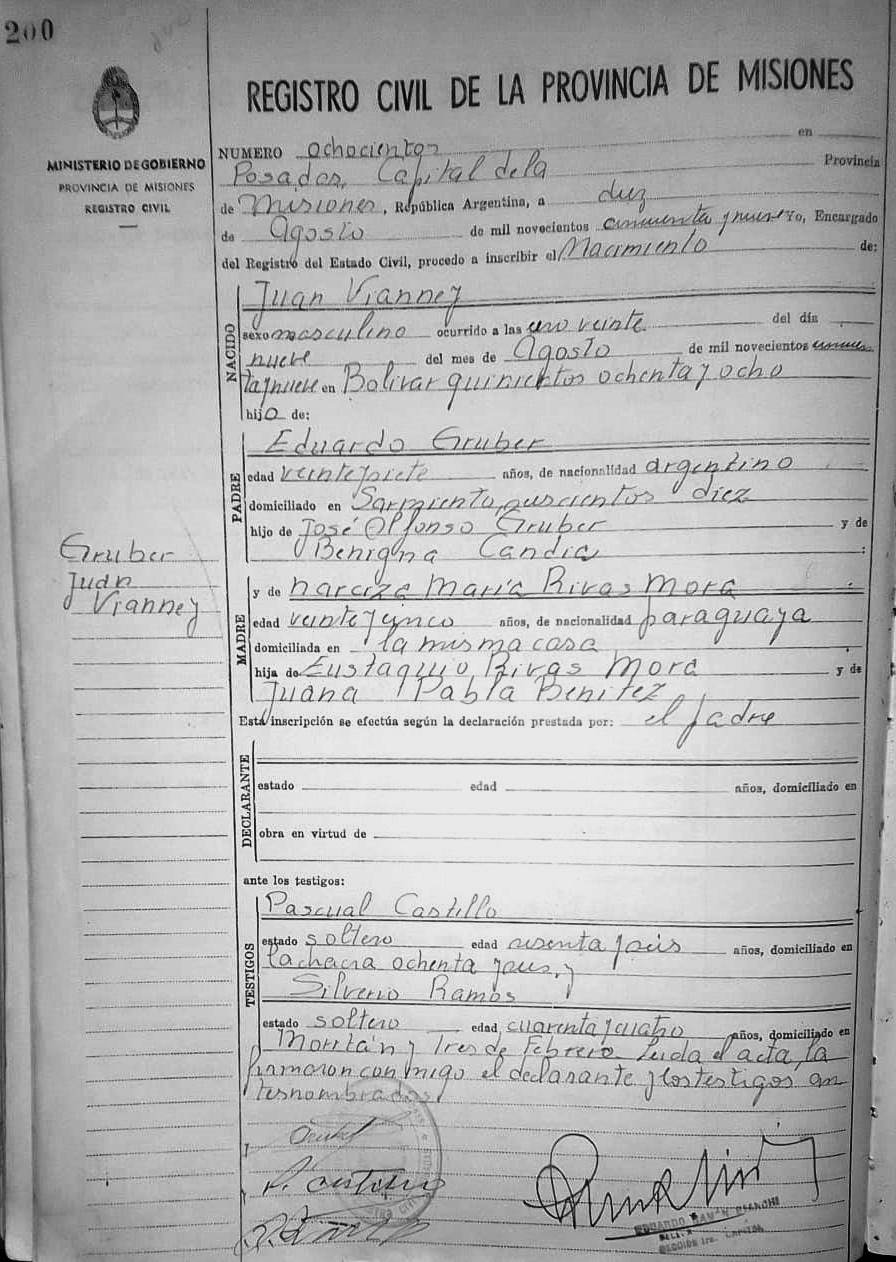 200
MINISTERIO DE GOBIERNO
PROVINCIA DE MISIONES
REGISTRO CIVIL
REGISTRO CIVIL DE LA PROVINCIA DE MISIONES
NUMERO ochocientos en
Posadas, Capital de la Provincia
de Misiones, República Argentina, a diez
de Agosto de mil novecientos cincuenta y nueve Yo, Encargado
del Registro del Estado Civil, procedo a inscribir el Nacimiento de:
NACIDO
Juan Vianney
sexo masculino ocurrido a las uno veinte del día
nueve del mes de Agosto de mil novecientos cincuen
ta y nueve en Bolivar quinientos ochenta y ocho
hijo de:
PADRE
Eduardo Gruber
edad veintisiete años, de nacionalidad argentino
domiciliado en Sarmiento diez
hijo de José Alfonso Gruber y de
Benigna Candia :
Gruber
Juan
Vianney
MADRE
y de Narciza María Rivas Mora
edad veinticinco años, de nacionalidad paraguaya
domiciliada en la misma casa
hija de Eustaquio Rivas Mora y de
Juana Pabla Benitez
Esta inscripción se efectúa según la declaración prestada por: el padre
DECLARANTE
estado edad años, domiciliado en
obra en virtud de
ante los testigos:
TESTIGOS
Pascual Castillo
estado soltero edad años, domiciliado en
la chacra ochenta y
Silverio Ramos
estado soltero edad, cuarenta y cuatro años, domiciliado en
y Tres de Febrero. Leida el acta, la
firmaron conmigo el declarante y los testigos an
tesnombrados
EDUARDO RAMÓN BIANCHI